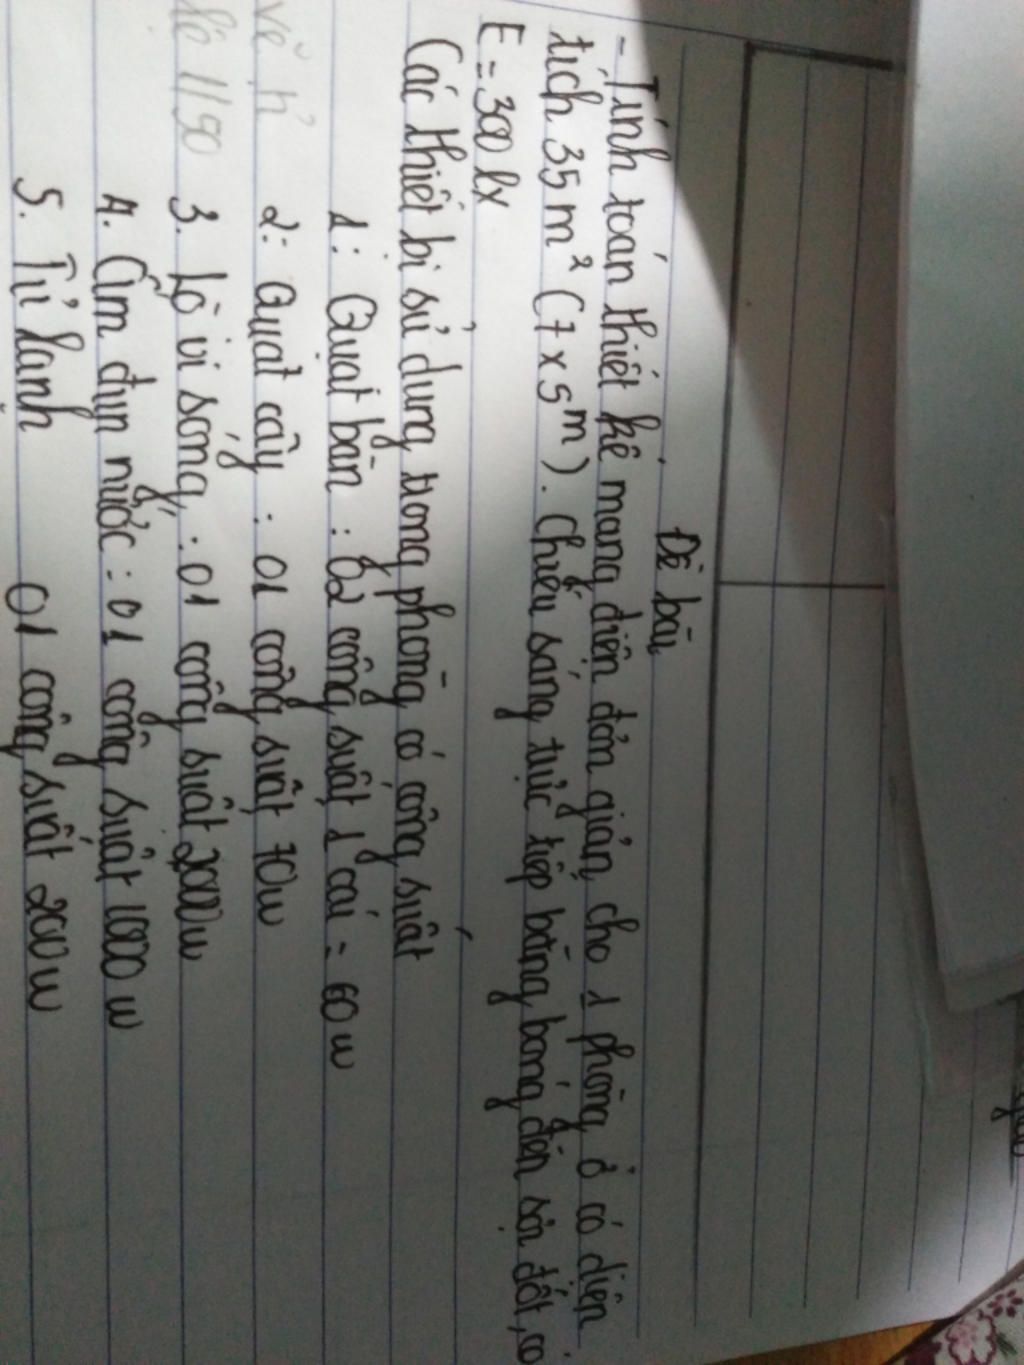 Đề bài
- Tính toán thiết kế mạng điện đơn giản cho 1 phòng ở có diện
tích 35 m² (7 x 5m). Chiếu sáng trực tiếp bằng bóng đèn sợi đốt, có
E = 300 lx
Các thiết bị sử dụng trong phòng có công suất
1: Quạt bàn : 02 công suất 1 cái = 60 w
2: Quạt cây : 01 công suất 70w
3. Lò vi sóng : 01 công suất 2000w
4. Ấm đun nước : 01 công suất 1000 w
5. Tủ lạnh 01 công suất 200w
vẽ